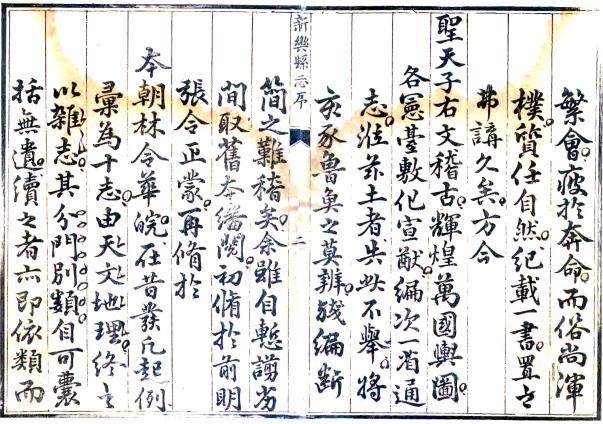 繁會疲於奔命而俗尚渾
樸質任自然紀載一書置之
弗講久矣方今
聖天子右文稽古輝煌萬國輿圖
各憲臺敷化宣猷編次一省通
志涖茲土者失此不舉將
亥豕魯魚之莫辨殘編斷
新樂縣志序
二
簡之難稽矣余雖自慙謭劣
間取舊本繙閱初脩於前明
張令正蒙再脩於
本朝林令華皖在昔發凡起例
彙為十志由天文地理終之
以雜志其分門別類自可囊
括無遺續之者亦即依類而